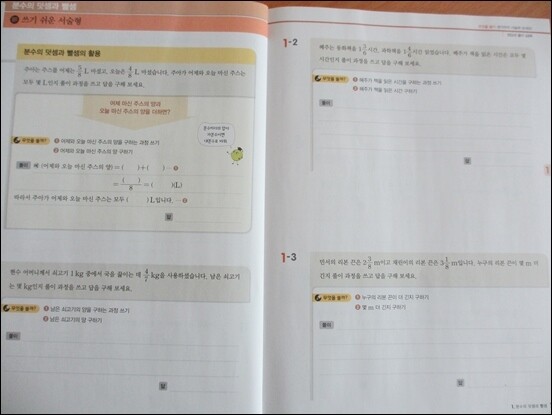 분수의 덧셈과 뺄셈
쓰기 쉬운 서술형
분수의 덧셈과 뺄셈의 활용
주아는 주스를 어제는 5/8 L 마셨고, 오늘은 4/8 L 마셨습니다. 주아가 어제와 오늘 마신 주스는
모두 몇 L인지 풀이 과정을 쓰고 답을 구해 보세요.
어제 마신 주스의 양과
오늘 마신 주스의 양을 더하면?
무엇을 쓸까?
❶ 어제와 오늘 마신 주스의 양을 구하는 과정 쓰기
❷ 어제와 오늘 마신 주스의 양 구하기
풀이 예 (어제와 오늘 마신 주스의 양) = ( ) + ( ) ··· ❶
= ( )/8 = ( )(L)
따라서 주아가 어제와 오늘 마신 주스는 모두 ( ) L입니다. ··· ❷
답
현수 어머니께서 쇠고기 1 kg 중에서 국을 끓이는 데 4/7 kg을 사용하셨습니다. 남은 쇠고기
는 몇 kg인지 풀이 과정을 쓰고 답을 구해 보세요.
무엇을 쓸까?
❶ 남은 쇠고기의 양을 구하는 과정 쓰기
❷ 남은 쇠고기의 양 구하기
풀이
답
1-2
시간인지 풀이 과정을 쓰고 답을 구해 보세요.
무엇을 쓸까?
❶ 혜주가 책을 읽은 시간을 구하는 과정 쓰기
❷ 혜주가 책을 읽은 시간 구하기
풀이
답
1-3
긴지 풀이 과정을 쓰고 답을 구해 보세요.
무엇을 쓸까?
❶ 누구의 리본 끈이 더 긴지 구하기
❷ 몇 m 더 긴지 구하기
풀이
답
1. 분수의 덧셈과 뺄셈